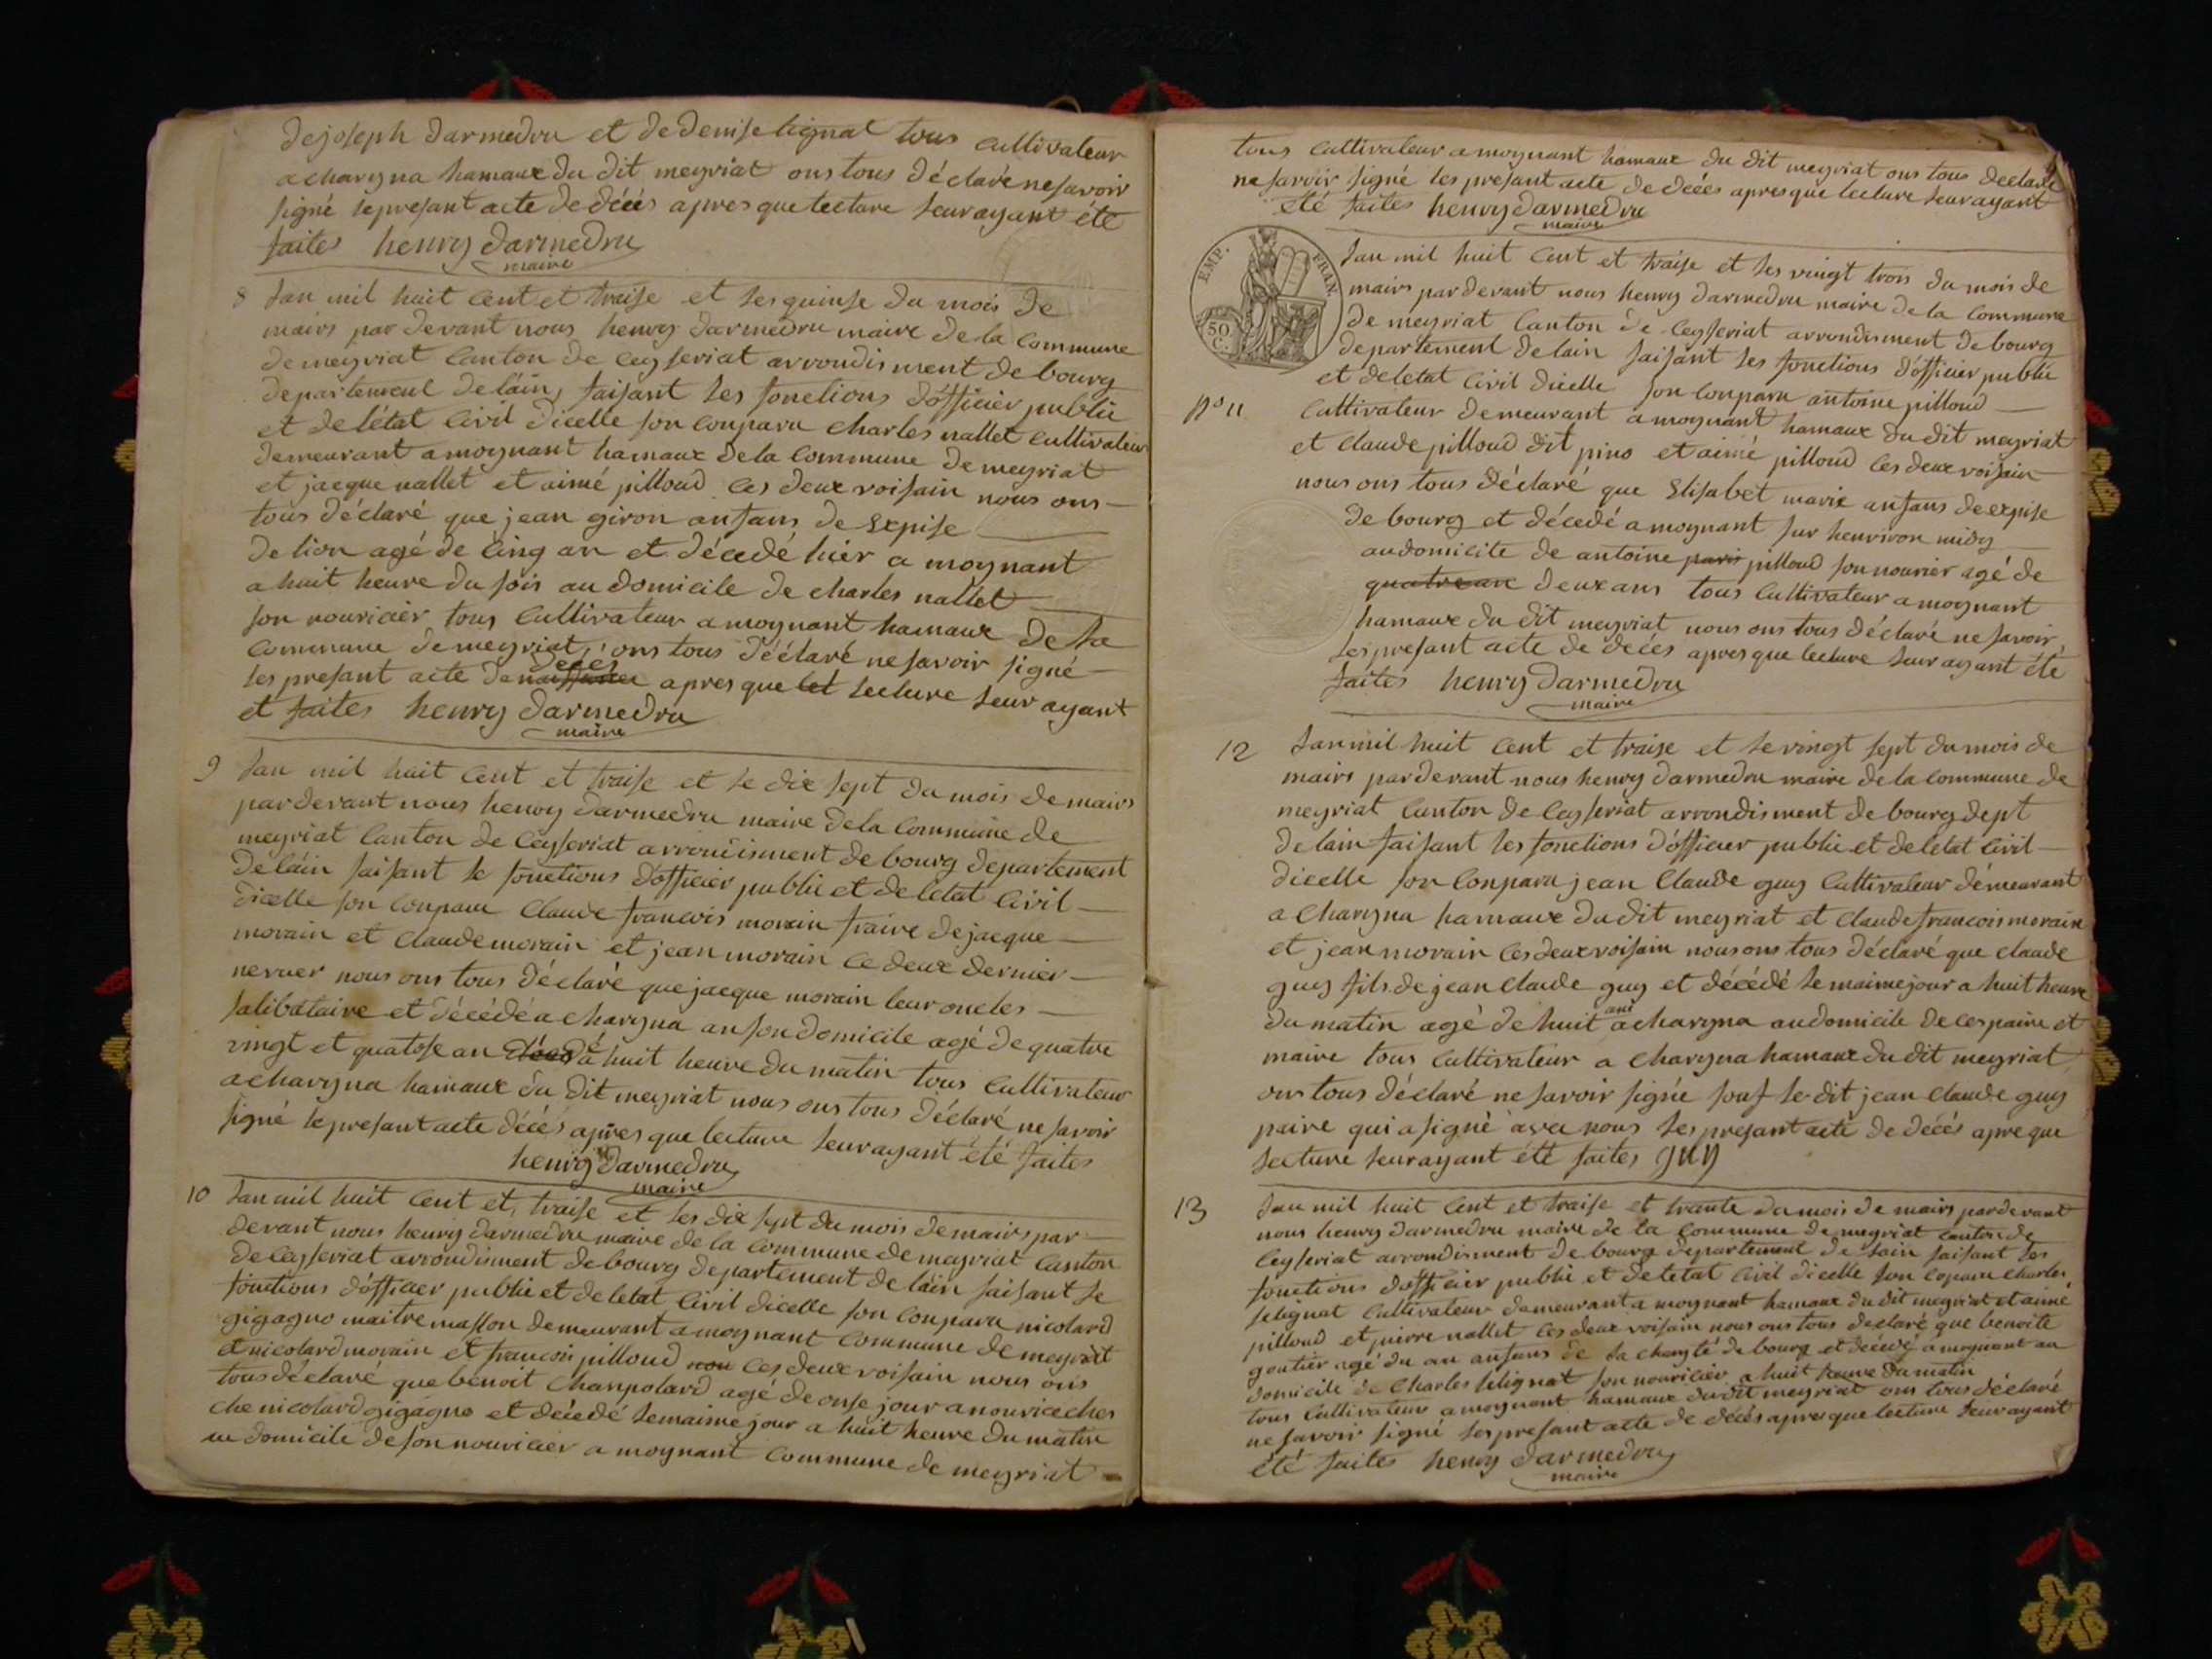 de joseph darmedru et de denise lignat tous cultivateur
a charyna hamaux du dit meyriat ons tous déclaré ne savoir
signé le present acte de décés apres que lecture leur ayant été
faites henry darmedru
maire
8 lan mil huit cent et traise et les quinse du mois de
mairs par devant nous henry darmedru maire de la commune
de meyriat canton de ceyseriat arrondisment de bourg
departement de láin, faisant les fonctions dófficier public
et de létat civil dicelle son conparu charles nallet cultivateur
demeurant a moynant hamaux de la commune de meyriat
et jacque nallet et aimé pilloud ces deux voisain nous ons
tous déclaré que jean giron ansans de Expise
de lion agé de cinq an et décedé hier a moynant
a huit heure du soir au domicile de charles nallet
son nouricier tous cultivateur a moynant hamaux de la
commune de meyriat ons tous déclaré ne savoir signé
les presant acte de naissance décés apres que let lecture leur ayant
et faites henry darmedru
maire
9 lan mil huit cent et traise et le dix sept du mois de mairs
par devant nous henry darmedru maire de la commune de
meyriat canton de ceyseriat arrondisment de bourg departement
de láin faisant le fonctions dófficier public et de letat civil
dicelle son conparu claude francois morain fraire de jacque
morain et claude morain et jean morain ce deux dernier
nevuer nous ons tous déclaré que jacque morain leur oncles
salibataire et décédé a charyna an son domicile agé de quatre
vingt et quatose an a huit heure du matin tous cultivateur
a charyna hamaux du dit meyriat nous ons tous déclaré ne savoir
signé le presant acte décés apres que lecture leur ayant été faites
henry darmedru
maire
10 lan mil huit cent et traise et les dix sept du mois de mairs par
devant nous henry darmedru maire de la commune de meyriat canton
de ceyseriat arrondisment de bourg departement de láin faisant le
fonctions dófficier public et de letat civil dicelle son conparu nicolard
gigagno maitre masson demeurant a moynant commune de meyriat
et nicolard morain et francois pilloud nou ces deux voisain nous ons
tous déclaré que benoit chanpolard agé de onse jour a nourice ches
che nicolard gigagno et décedé le maime jour a huit heure du matin
au domicile de son nouricier a moynant commune de meyriat
tous cultivateur a moynant hamaux du dit meyriat ons tous déclaré
ne savoir signé les presant acte de décés apres que lecture leur ayant
été faites henry darmedru
maire
EMP. FRAN.
50 C.
lan mil huit cent et traise et les vingt trois du mois de
mairs par devant nous henry darmedru maire de la commune
de meyriat canton de ceyseriat arrondisment de bourg
departement de lain faisant les fonctions dófficier public
et de letat civil dicelle son conparu antoine pilloud
no 11 cultivateur demeurant a moynant hamaux du dit meyriat
et claude pilloud dit pino et aimé pilloud ces deux voisain
nous ons tous déclaré que Elisabet marix ansans de expise
de bourg et décedé a moynant sur henviron midy
au domicile de antoine paris pilloud son nourier agé de
quatre an deux ans tous cultivateur a moynant
hamaux du dit meyriat nous ons tous déclaré ne savoir
les presant acte de decés apres que lecture leur ayant été
faites henry darmedru
maire
12 lan mil huit cent et traise et le vingt sept du mois de
mairs par devant nous henry darmedru maire de la commune de
meyriat canton de ceyseriat arrondisment de bourg dept
de lain faisant les fonctions dófficier public et de létat civil
dicelle son conparu jean claude guy cultivateur démeurant
a charyna hamaux du dit meyriat et claude francois morain
et jean morain ces deux voisain nous ons tous déclaré que claude
guy fils de jean claude guy et décédé le maime jour a huit heure
du matin agé de huit ans a charyna au domicile de ces paire et
maire tous cultivateur a charyna hamaux du dit meyriat
ons tous déclaré ne savoir signé souf le dit jean claude guy
paire qui a signé avec nous les presant acte de décés apre que
lecture leur ayant été faites guy
13 lan mil huit cent et traise et trante du mois de mairs par devant
nous henry darmedru maire de la commune de meyriat canton de
ceyseriat arrondisment de bourg departement de lain faisant les
fonctions dófficier public et de letat civil dicelle son coparu charles
selignat cultivateur demeurant a moynant hamaux du dit meyriat et aimé
pilloud et pierre nallet ces deux voisain nous ons tous declaré que benoite
goutier agé du an ansans de la charyté de bourg et décédé a moynant au
domicile de charles selignat son nouricier a huit heure du matin
tous cultivateur a moynant hamaux du dit meyriat ons tous déclaré
ne savoir signé les presant acte de décés apres que lecture leur ayant
été faites henry darmedru
maire